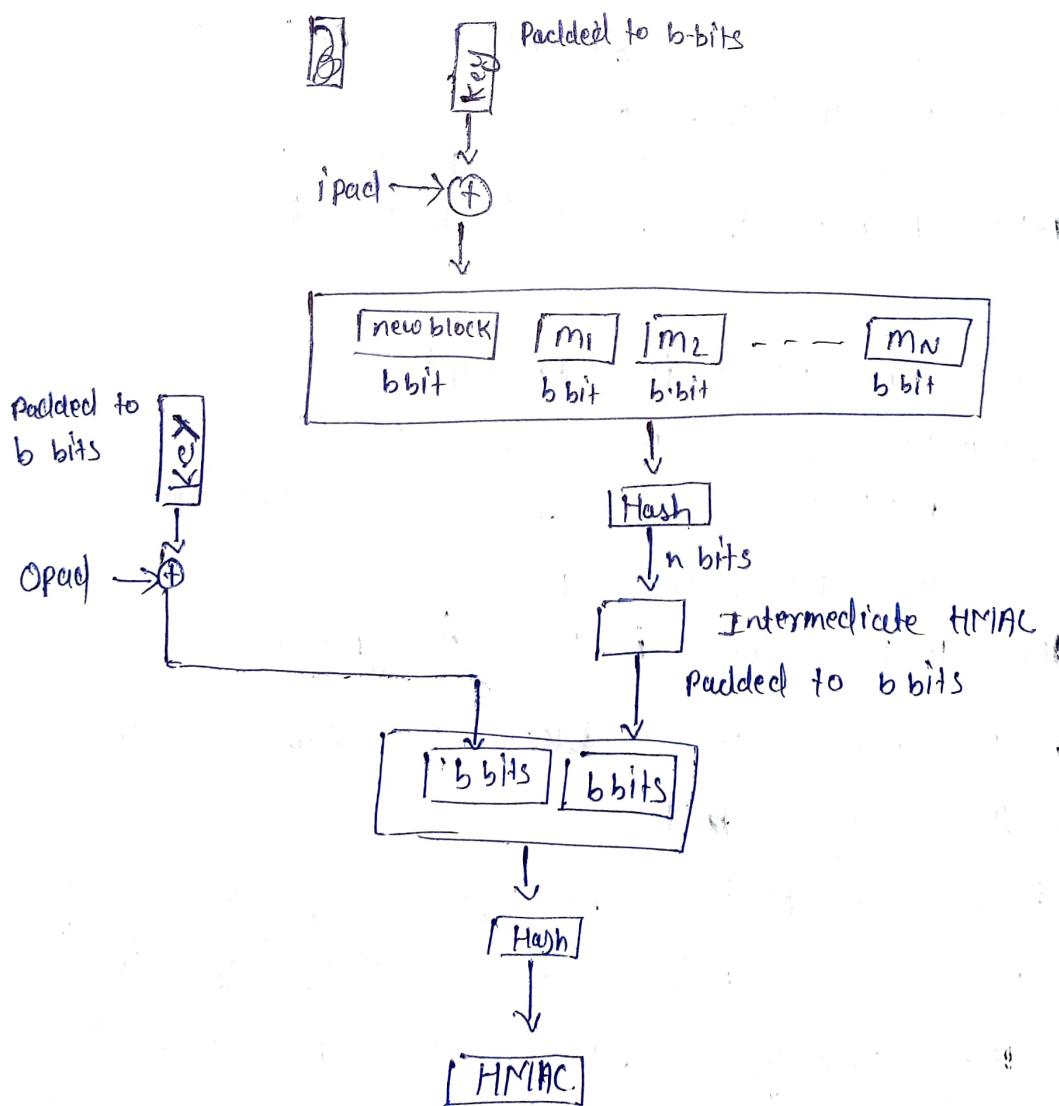 Padded to b-bits
Key
ipad
new block
m1
m2
mN
b bit
b bit
b.bit
b bit
Padded to
b bits
Key
Opad
Hash
n bits
Intermediate HMAC
Padded to b bits
b bits
b bits
Hash
HMAC.